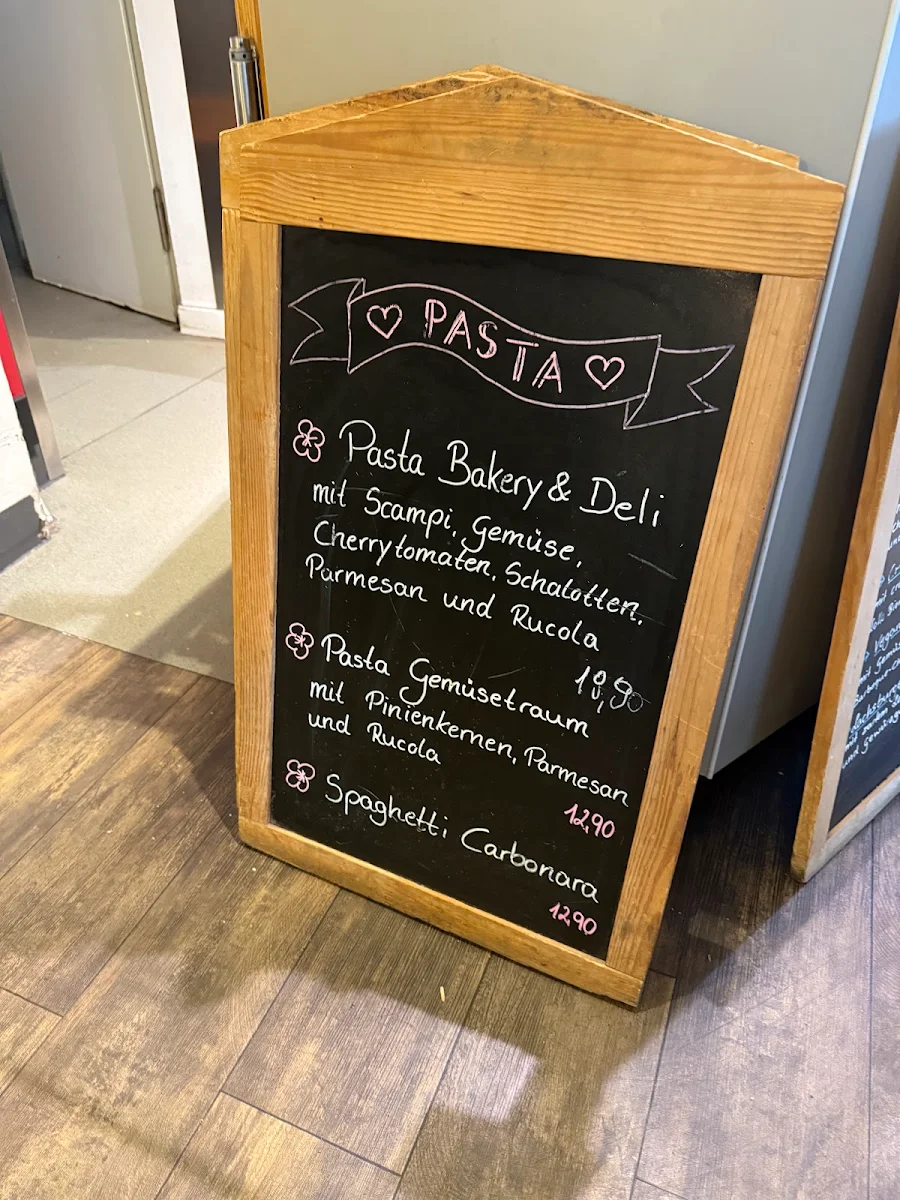 PASTA
Pasta Bakery & Deli
mit Scampi, Gemüse,
Cherrytomaten, Schalotten,
Parmesan und Rucola
18,90
Pasta Gemüsetraum
mit Pinienkernen, Parmesan
und Rucola
12,90
Spaghetti Carbonara
12,90